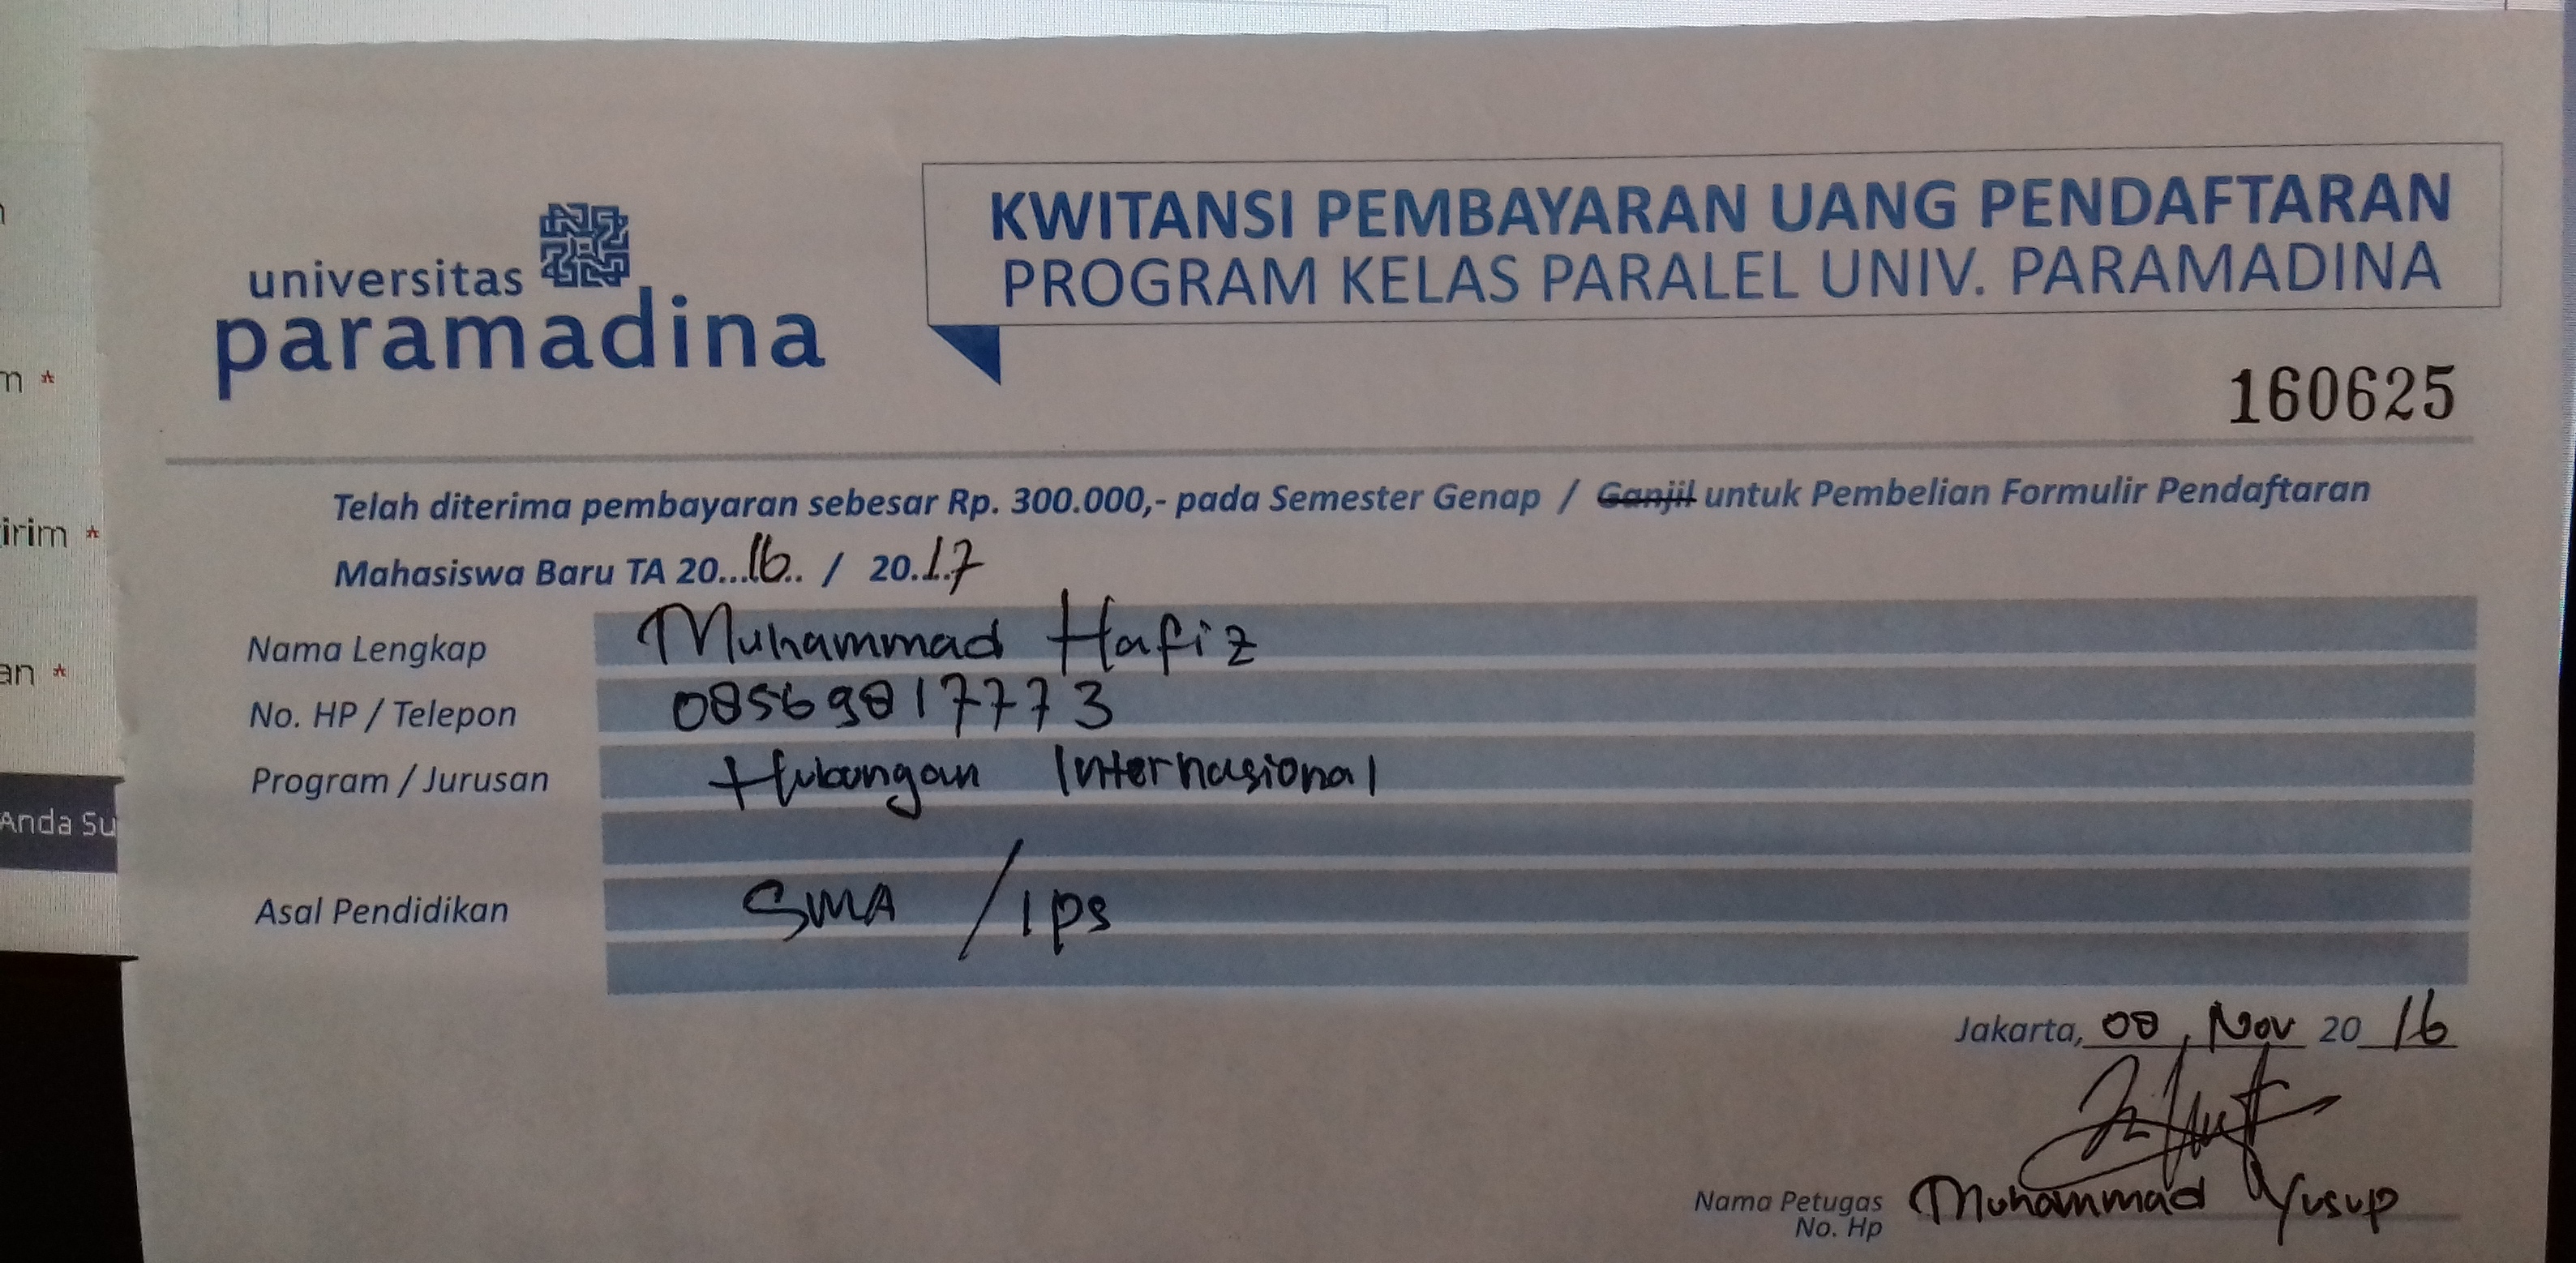 universitas
paramadina
KWITANSI PEMBAYARAN UANG PENDAFTARAN
PROGRAM KELAS PARALEL UNIV. PARAMADINA
160625
Telah diterima pembayaran sebesar Rp. 300.000,- pada Semester Genap / Ganjil untuk Pembelian Formulir Pendaftaran
Mahasiswa Baru TA 20...16.. / 20.17
Nama Lengkap Muhammad Hafiz
No. HP / Telepon 08569817773
Program / Jurusan Hubungan Internasional
Asal Pendidikan SMA / IPS
Jakarta, 08, Nov 20 16
Nama Petugas Muhammad Yusup
No. Hp
m *
irim *
an *
Anda Su